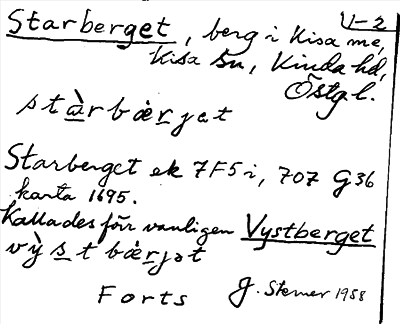 1-2
Starberget, berg i Kisa sn,
Kisa sn, Kinda hd,
Östgl.
stàrbærjət
Starberget ek 7F5i, 707 G36
karta 1695.
Kallades förr vanligen Vystberget
vỳstbærjət
Forts J. Sterner 1988